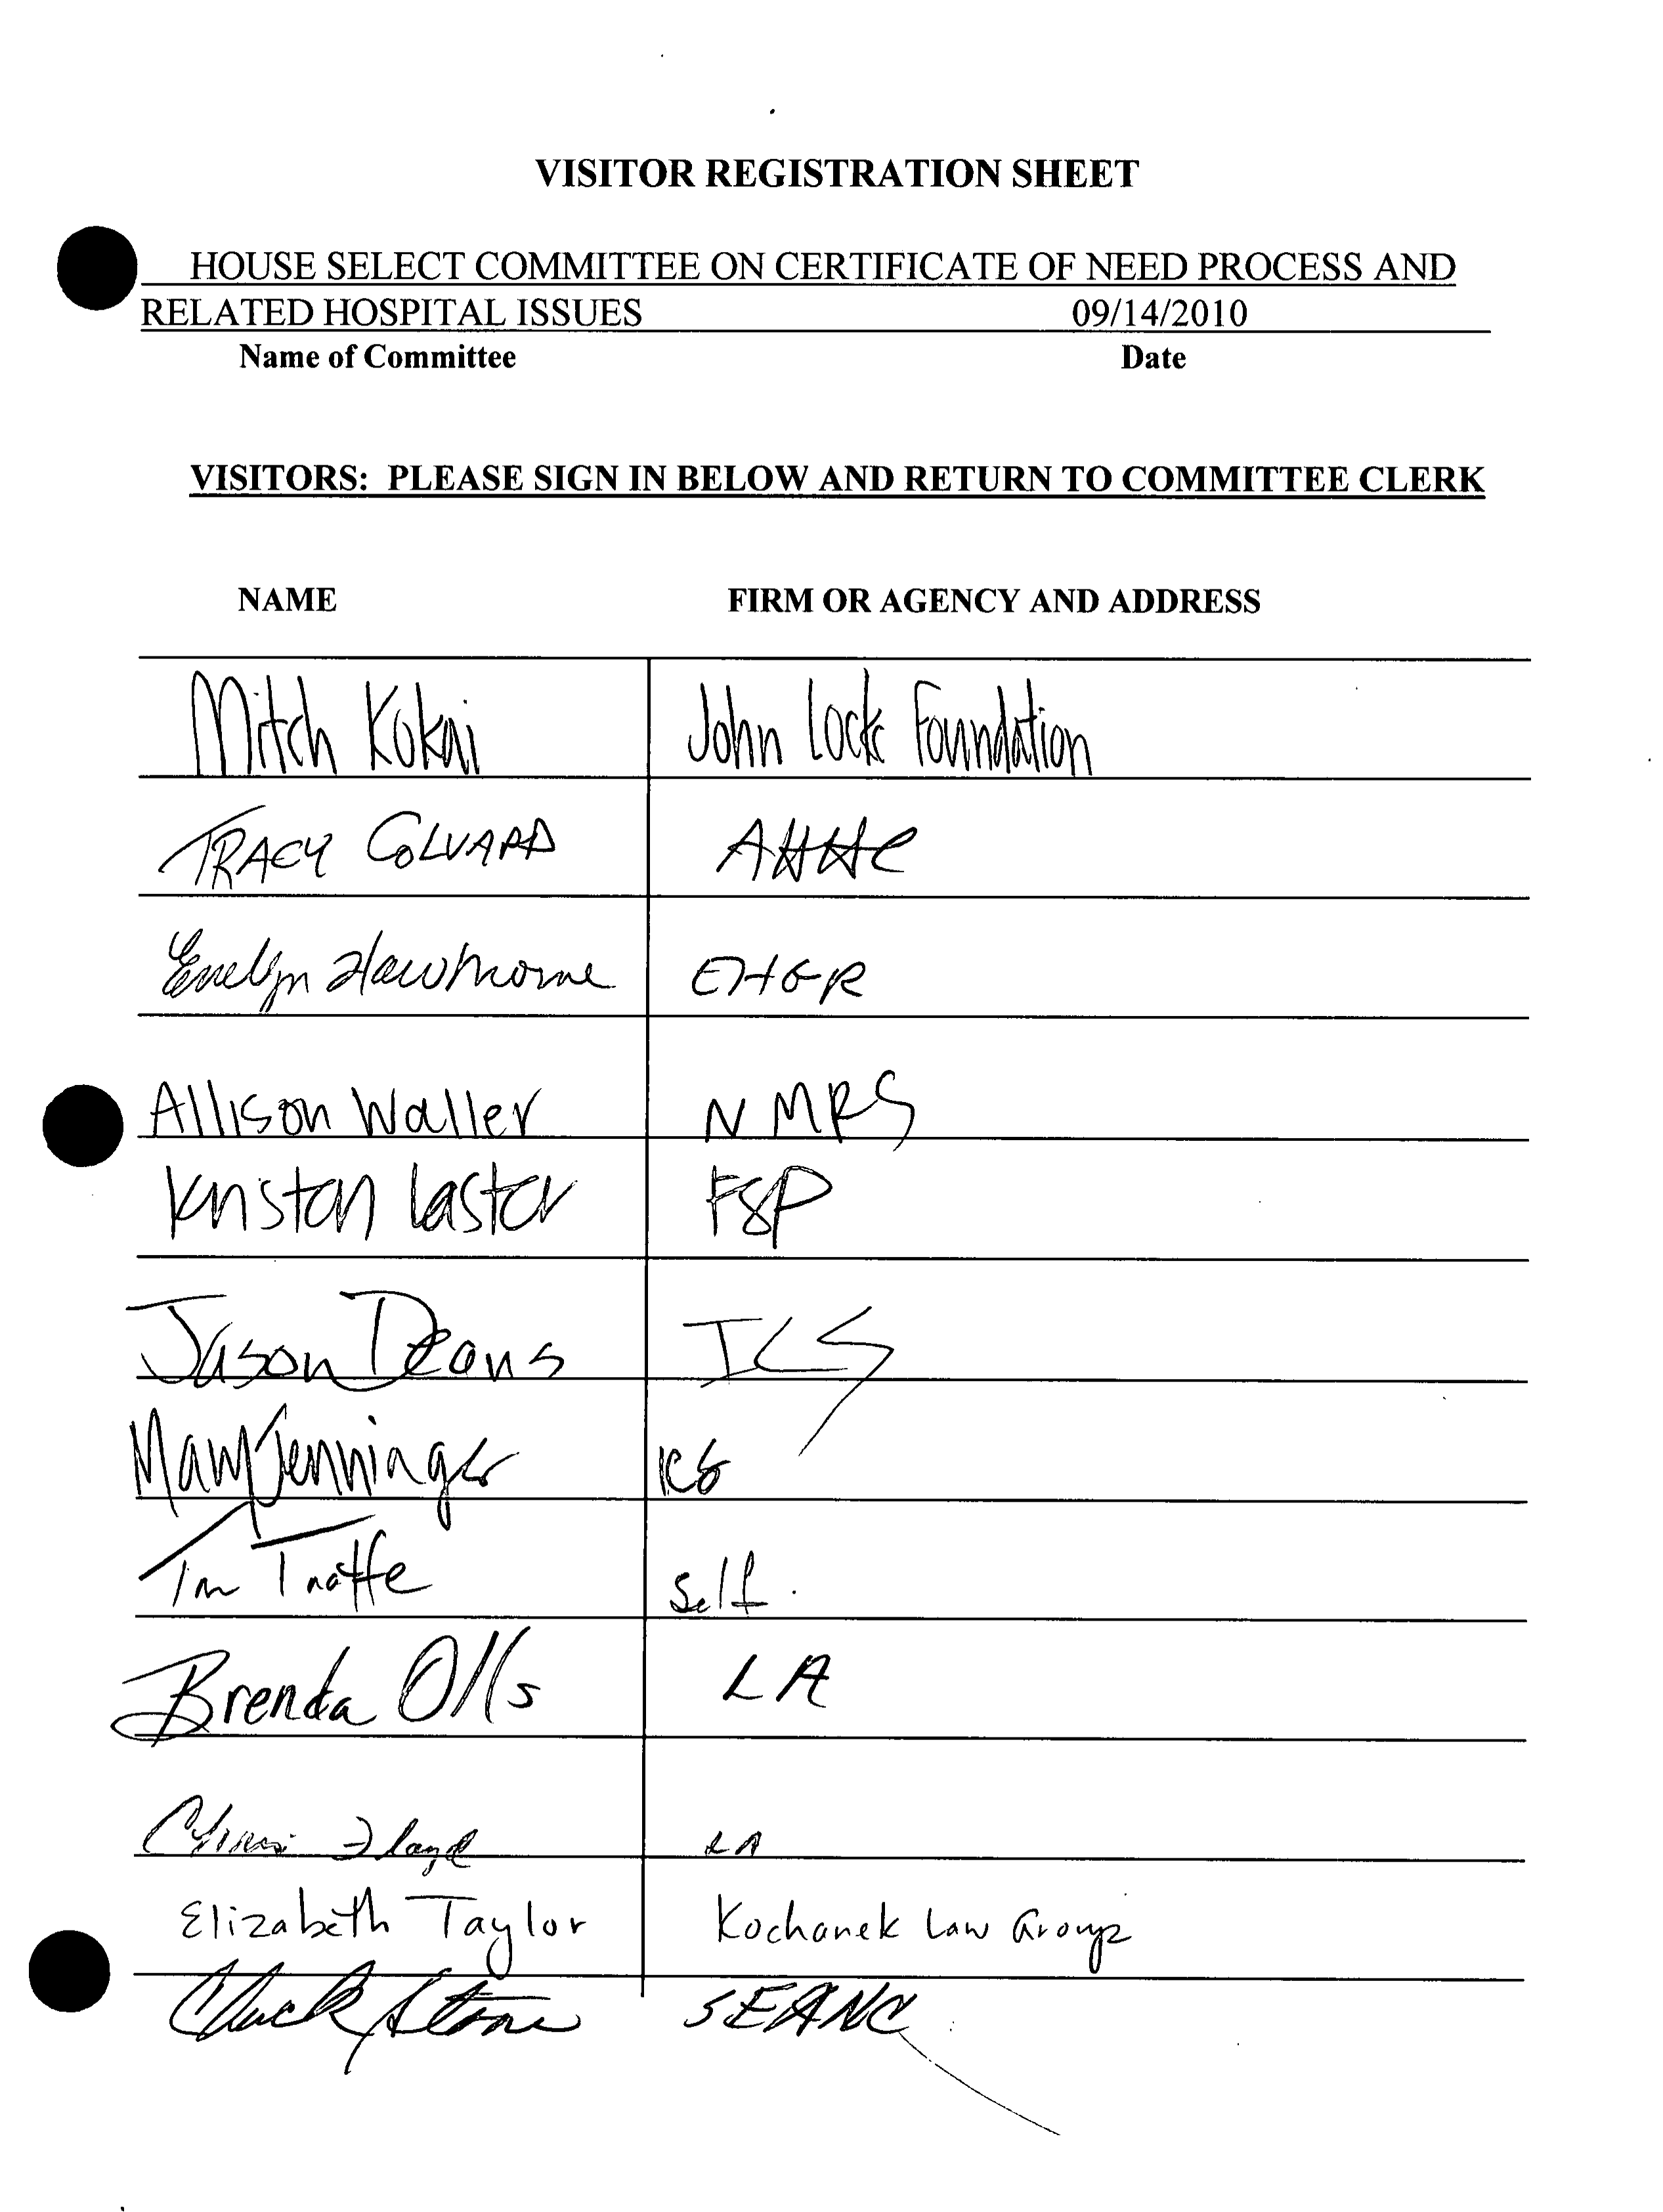 VISITOR REGISTRATION SHEET
HOUSE SELECT COMMITTEE ON CERTIFICATE OF NEED PROCESS AND
RELATED HOSPITAL ISSUES 09/14/2010
Name of Committee Date
VISITORS: PLEASE SIGN IN BELOW AND RETURN TO COMMITTEE CLERK
NAME FIRM OR AGENCY AND ADDRESS
Mitch Kokai John Locke Foundation
TRACY COLVARD AHHC
Evelyn Hawthorne
Allison Waller NMRS
Kristen Laster FSP
Jason Deans
Mary Jennings
Self.
Brenda Olls LA
Floyd LA
Elizabeth Taylor Kochanek Law Group
Chuck Stone SEANC